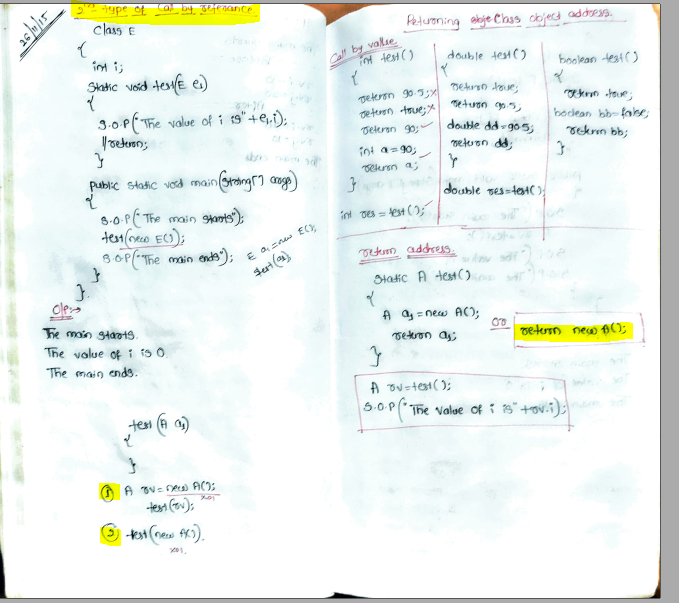 26/11/15
2nd type of Call by referance
Class E
{
int i;
Static void test(E e1)
{
S.O.P("The value of i is"+e1.i);
//return;
}
public static void main(String[] args)
{
S.O.P("The main starts");
test(new E());
S.O.P("The main ends");
E a1=new E();
test(a1);
}
}.
O/P:→
The main starts.
The value of i is 0.
The main ends.
test(A a1)
{
}
① A rv=new A();
x01
test(rv);
② test(new A()).
x01.
Returning Class object address.
Call by value
int test()
{
return 90.5;x
return true;x
return 90;✓
int a=90;
return a;✓
}
int res=test();✓
double test()
{
return true;
return 90.5,
double dd=90.5
return dd;
}
double res=test()
boolean test()
{
return true;
boolean bb=false;
return bb;
}
return address.
Static A test()
{
A a1=new A();
return a1;
}
OR
return new A();
A rv=test();
S.O.P("The value of i is"+rv.i);